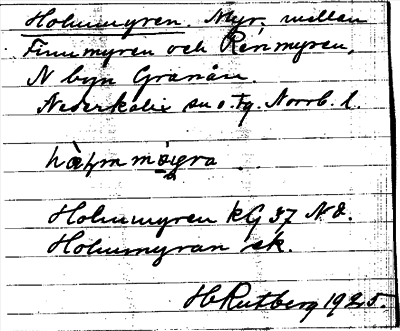 Holmmyren. Myr. mellan
Finnmyren och Renmyren,
N byn Granån.
Nederkalix sn o. tg. Norrb. l.
Holmmyren kG 37 Nð.
Holmmyran sk.
H Rutberg 1925.